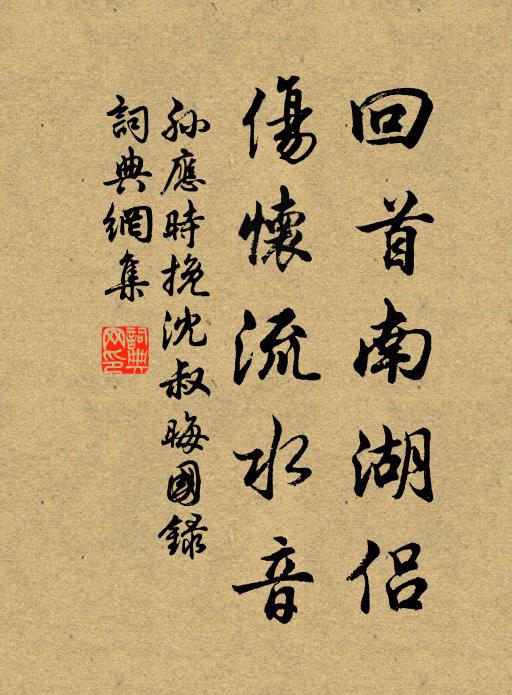 回首南湖侶
傷懷流水音
孫應時挽沈叔晦國錄
詞典網集
詞典网印